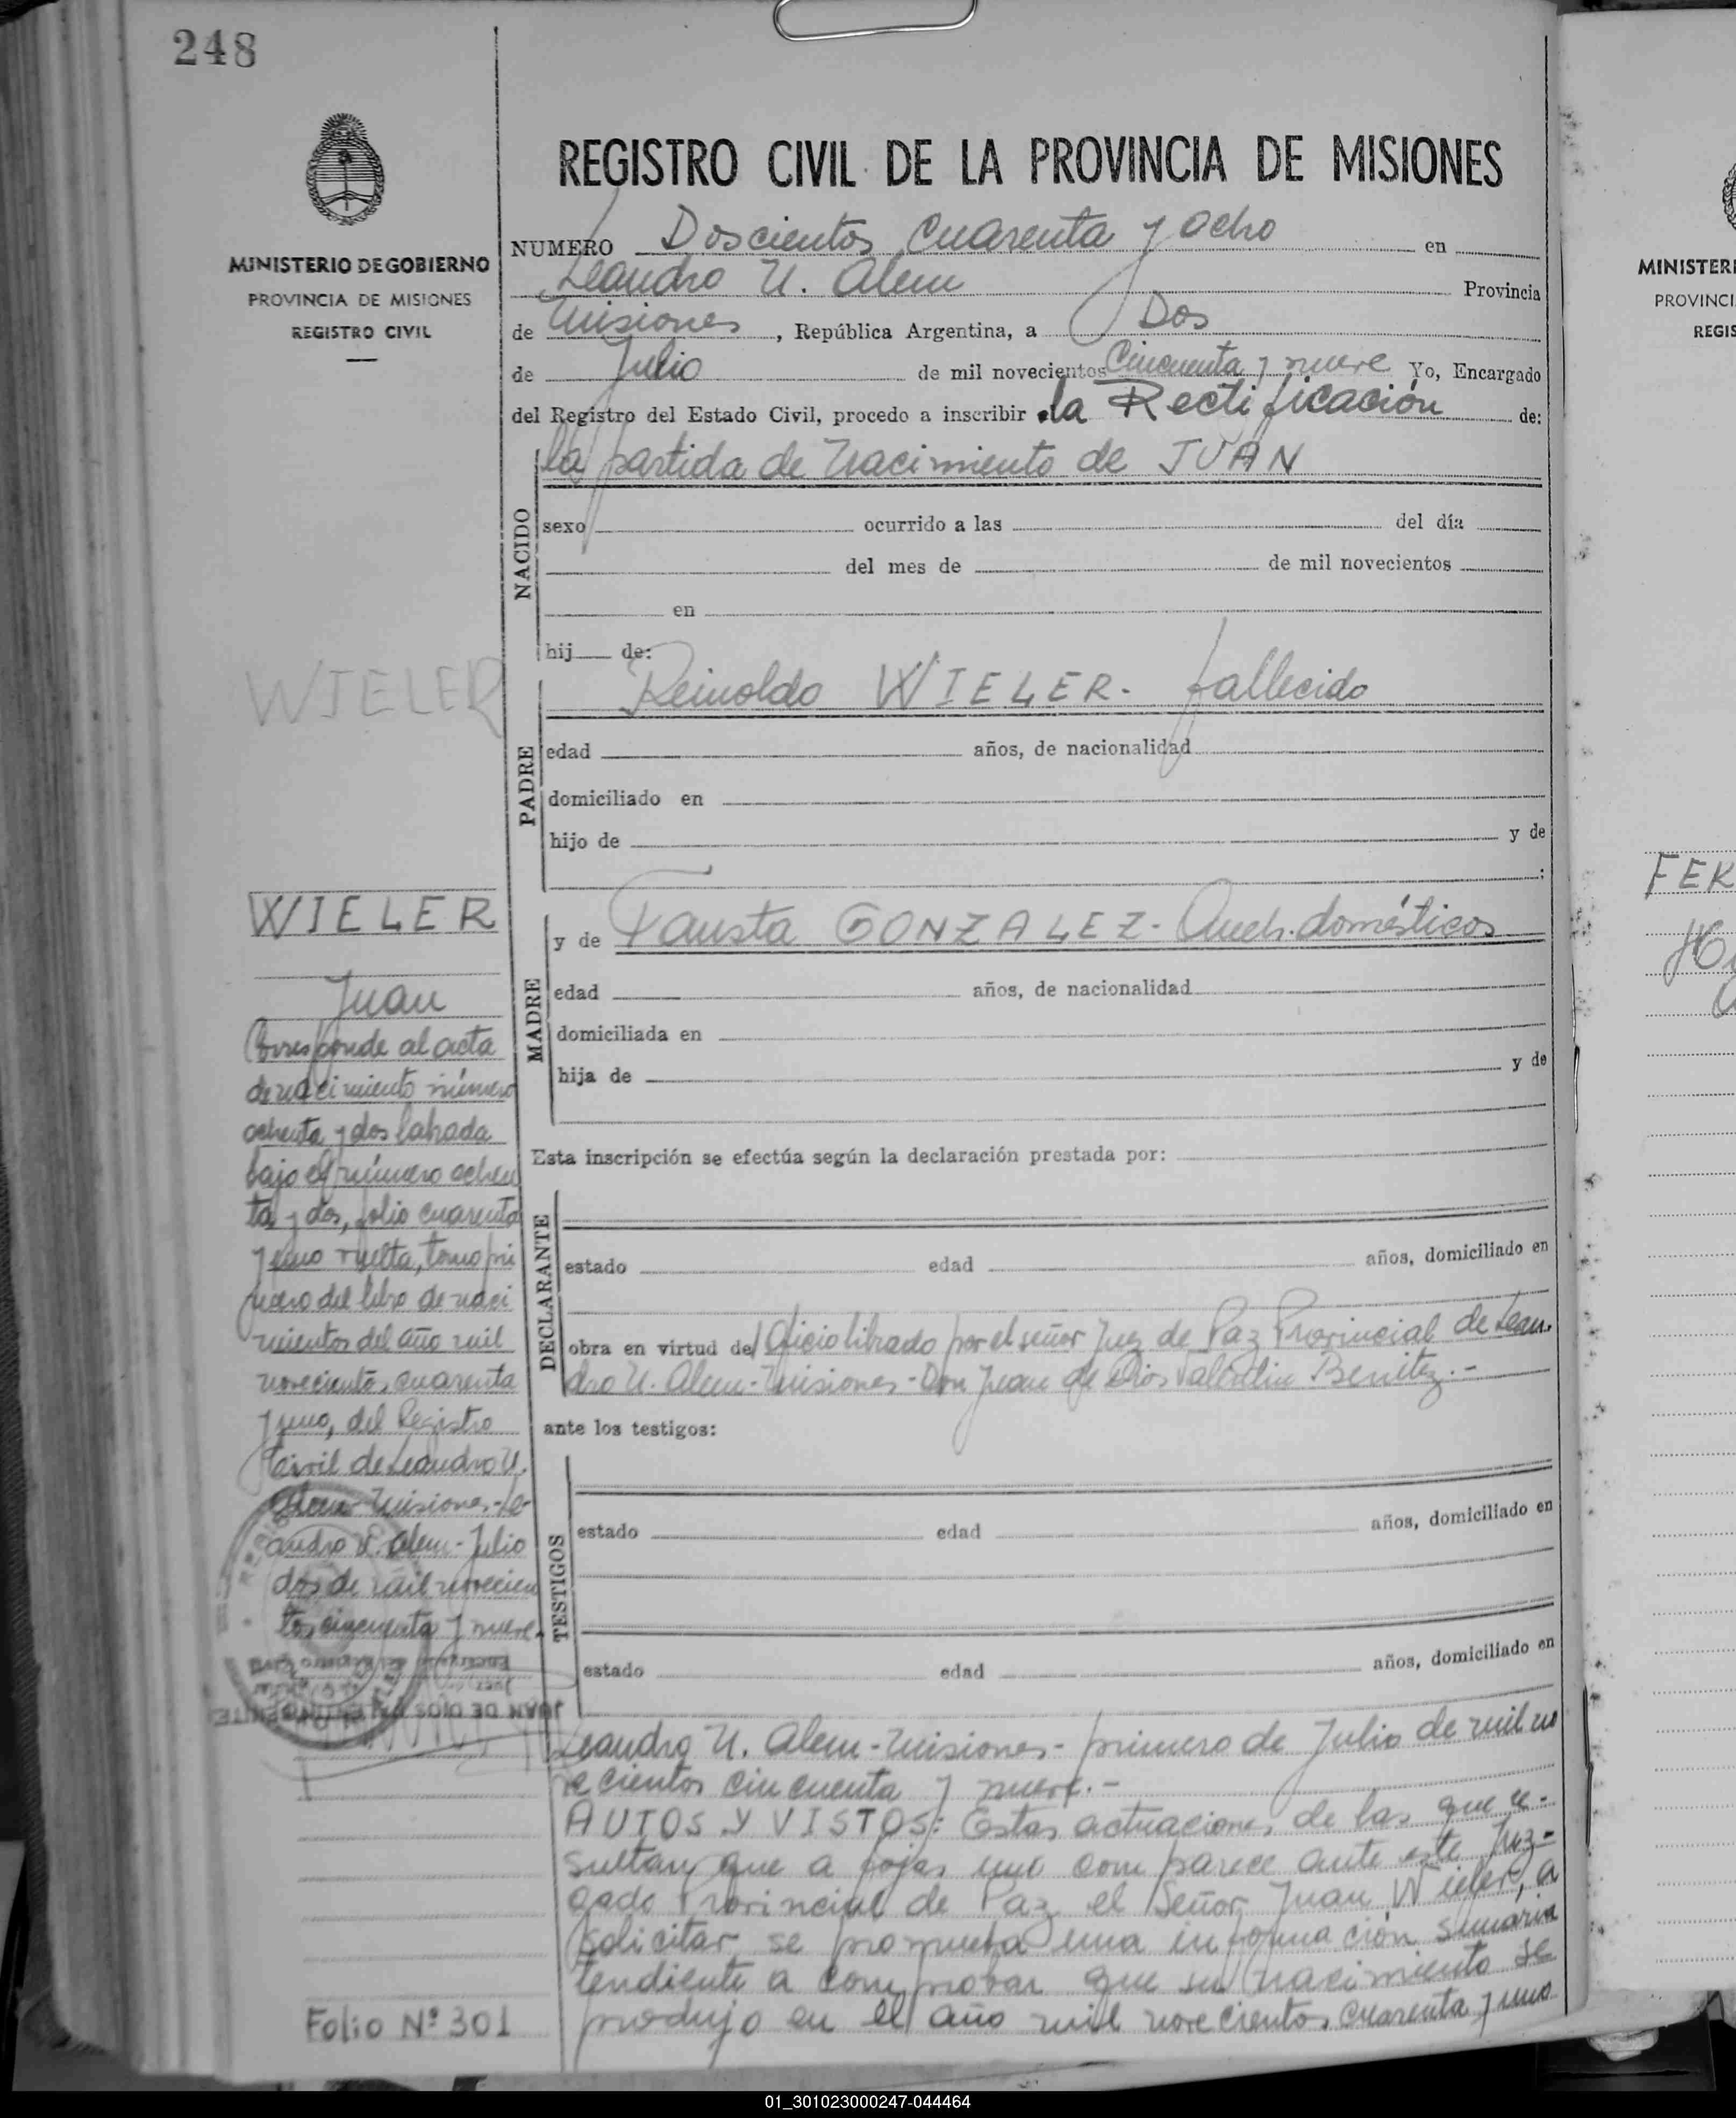 248
MINISTERIO DE GOBIERNO
PROVINCIA DE MISIONES
REGISTRO CIVIL
REGISTRO CIVIL DE LA PROVINCIA DE MISIONES
NUMERO Doscientos Cuarenta y Ocho en
Leandro N. Alem Provincia
de Misiones, República Argentina, a Dos
de Julio de mil novecientos Cincuenta y nueve Yo, Encargado
del Registro del Estado Civil, procedo a inscribir la Rectificación de:
la partida de Nacimiento de JUAN
NACIDO
sexo ocurrido a las del día
del mes de de mil novecientos
en
hij de:
WIELER
PADRE
Reinoldo WIELER- fallecido
edad años, de nacionalidad
domiciliado en
hijo de y de
;
MADRE
y de Fausta GONZALEZ- domésticos
edad años, de nacionalidad
domiciliada en
hija de y de
Esta inscripción se efectúa según la declaración prestada por:
DECLARANTE
estado edad años, domiciliado en
obra en virtud del Oficio librado por el señor Juez de Paz Provincial de Lean-
dro N. Alem-Misiones-Don Juan de Dios Valentin Benitez.-
ante los testigos:
TESTIGOS
estado edad años, domiciliado en
estado edad años, domiciliado en
WIELER
Juan
Corresponde al acta
de nacimiento número
ochenta y dos labrada
bajo el número ochen
ta y dos, folio cuarenta
y uno vuelta, tomo pri
mero del libro de naci
mientos del año mil
novecientos cuarenta
y uno, del Registro
Civil de Leandro N.
Alem-Misiones-Le-
andro N. Alem-Julio
dos de mil novecien
tos cincuenta y nueve.
Encargado del Registro Civil
Juez
JUAN DE DIOS VALENTIN BENITE
Leandro N. Alem-Misiones-primero de Julio de mil no
vecientos cincuenta y nueve.-
AUTOS Y VISTOS: Estas actuaciones de las que re-
sultan que a fojas uno comparece ante este Juz-
gado Provincial de Paz el Señor Juan Wieler, a
solicitar se promueba una información sumaria
tendiente a comprobar que su nacimiento se
produjo en el año mil novecientos cuarenta y uno
Folio Nº 301
MINISTERI
PROVINCI
REGIS
FER
01_301023000247-044464